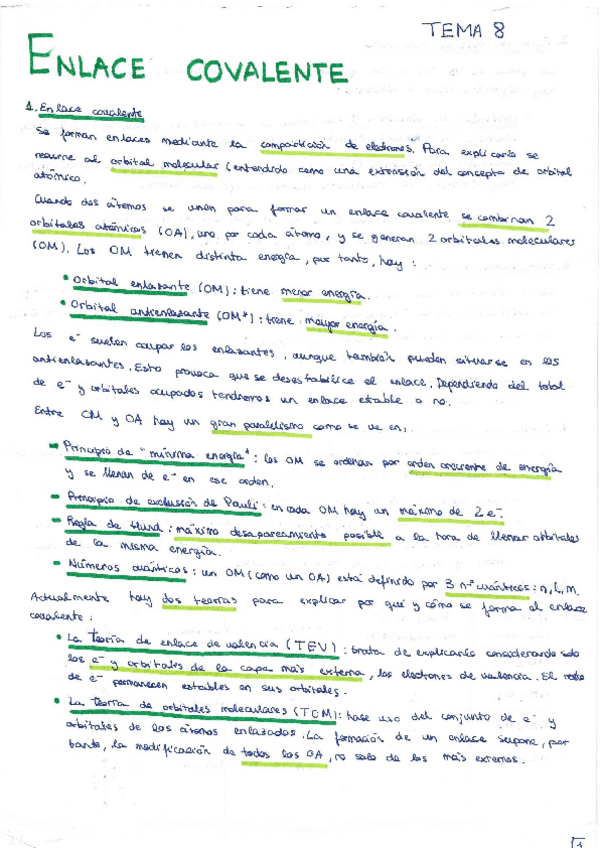 TEMA 8
ENLACE COVALENTE
1. Enlace covalente
Se forman enlaces mediante la compartición de electrones. Para explicarlo se
recurre al orbital molecular (entendido como una extensión del concepto de orbital
atómico.
Cuando dos átomos se unen para formar un enlace covalente se combinan 2
orbitales atómicos (OA), uno por cada átomo, y se generan 2 orbitales moleculares
(OM). Los OM tienen distinta energía, por tanto, hay:
• Orbital enlazante (OM): tiene menor energía.
• Orbital antienlazante (OM*): tiene mayor energía.
Los e⁻ suelen ocupar los enlazantes, aunque también pueden situarse en los
antienlazantes. Esto provoca que se desestabilice el enlace. Dependiendo del total
de e⁻ y orbitales ocupados tendremos un enlace estable o no.
Entre OM y OA hay un gran paralelismo como se ve en:
- Principio de "mínima energía": los OM se ordenan por orden creciente de energía
y se llenan de e⁻ en ese orden.
- Principio de exclusión de Pauli: en cada OM hay un máximo de 2 e⁻.
- Regla de Hund: máximo desapareamiento posible a la hora de llenar orbitales
de la misma energía.
- Números cuánticos: un OM (como un OA) está definido por 3 nº cuánticos: n, l, m.
Actualmente hay dos teorías para explicar por qué y cómo se forma el enlace
covalente:
• La Teoría de enlace de valencia (TEV): trata de explicarlo considerando solo
los e⁻ y orbitales de la capa más externa, los electrones de valencia. El resto
de e⁻ permanecen estables en sus orbitales.
• La Teoría de orbitales moleculares (TOM): hace uso del conjunto de e⁻ y
orbitales de los átomos enlazados. La formación de un enlace supone, por
tanto, la modificación de todos los OA, no solo de los más externos.
1